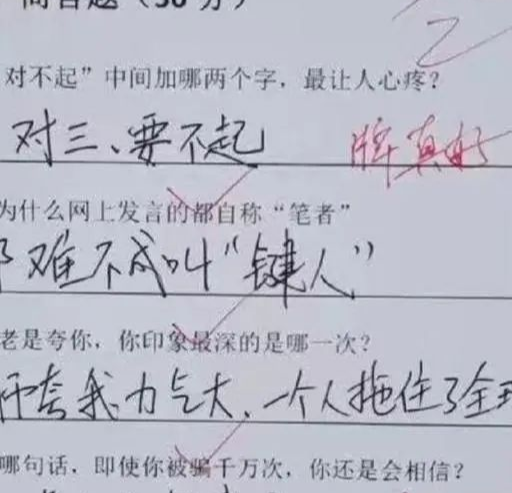 简答题（30分）
对不起”中间加哪两个字，最让人心疼？
对三、要不起 牌真好
为什么网上发言的都自称“笔者”
难不成叫“键人”
老是夸你，你印象最深的是哪一次？
夸我力气大、一个人拖住了全
哪句话，即使你被骗千万次，你还是会相信？